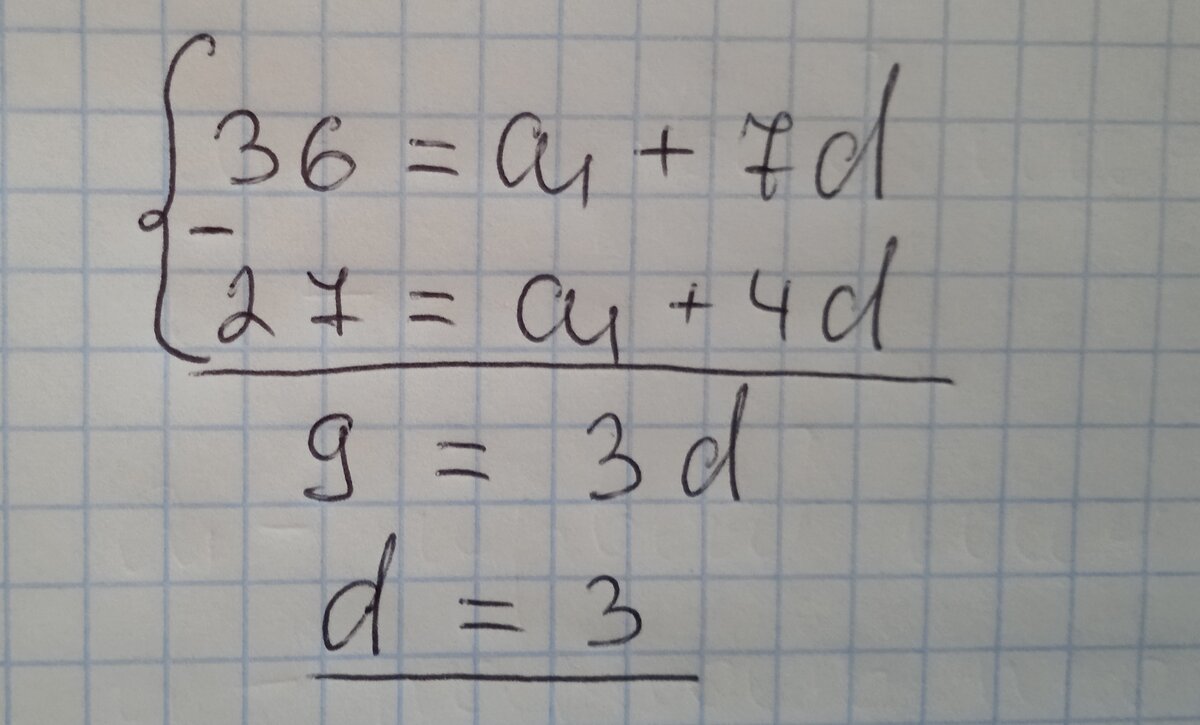 36 = a₁ + 7d
-
27 = a₁ + 4d
9 = 3d
d = 3